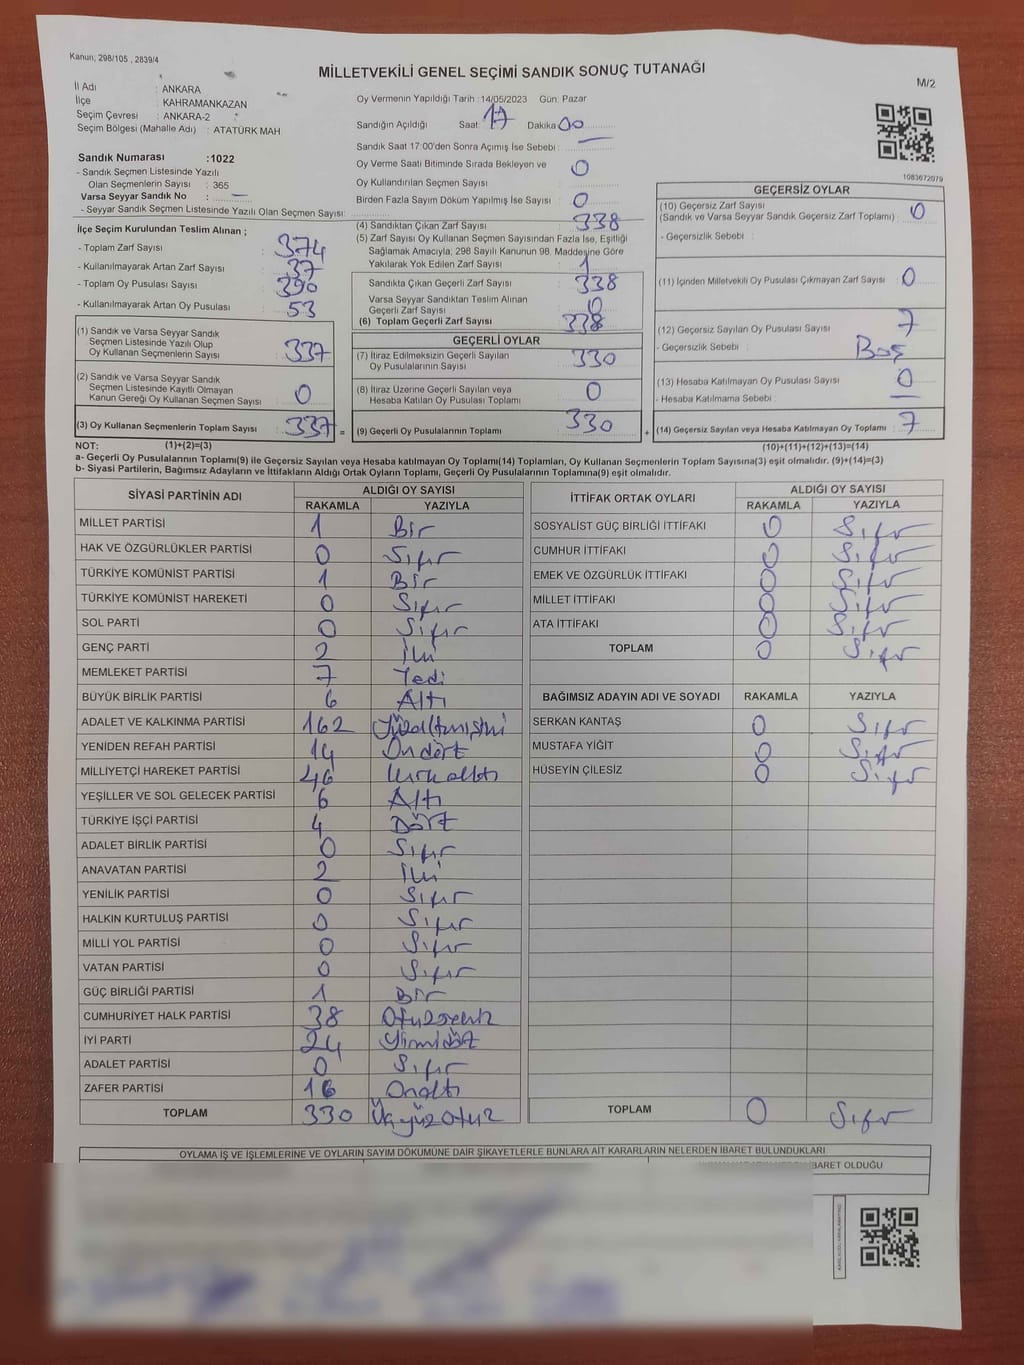 Kanun; 298/105 , 2839/4
MİLLETVEKİLİ GENEL SEÇİMİ SANDIK SONUÇ TUTANAĞI
M/2
İl Adı : ANKARA
İlçe : KAHRAMANKAZAN
Seçim Çevresi : ANKARA-2
Seçim Bölgesi (Mahalle Adı) : ATATÜRK MAH
Oy Vermenin Yapıldığı Tarih :14/05/2023 Gün: Pazar
Sandığın Açıldığı Saat: 17 Dakika 00
Sandık Saat 17:00'den Sonra Açımış İse Sebebi : —
Oy Verme Saati Bitiminde Sırada Bekleyen ve
Oy Kullandırılan Seçmen Sayısı : 0
Birden Fazla Sayım Döküm Yapılmış İse Sayısı : 0
Sandık Numarası :1022
- Sandık Seçmen Listesinde Yazılı
Olan Seçmenlerin Sayısı : 365
Varsa Seyyar Sandık No : —
- Seyyar Sandık Seçmen Listesinde Yazılı Olan Seçmen Sayısı:
1083672079
İlçe Seçim Kurulundan Teslim Alınan ;
- Toplam Zarf Sayısı : 374
- Kullanılmayarak Artan Zarf Sayısı : 37
- Toplam Oy Pusulası Sayısı : 390
- Kullanılmayarak Artan Oy Pusulası : 53
(1) Sandık ve Varsa Seyyar Sandık
Seçmen Listesinde Yazılı Olup
Oy Kullanan Seçmenlerin Sayısı : 337
(2) Sandık ve Varsa Seyyar Sandık
Seçmen Listesinde Kayıtlı Olmayan
Kanun Gereği Oy Kullanan Seçmen Sayısı : 0
(3) Oy Kullanan Seçmenlerin Toplam Sayısı : 337 =
(4) Sandıktan Çıkan Zarf Sayısı : 338
(5) Zarf Sayısı Oy Kullanan Seçmen Sayısından Fazla İse, Eşitliği
Sağlamak Amacıyla; 298 Sayılı Kanunun 98. Maddesine Göre
Yakılarak Yok Edilen Zarf Sayısı : 1
Sandıkta Çıkan Geçerli Zarf Sayısı : 338
Varsa Seyyar Sandıktan Teslim Alınan
Geçerli Zarf Sayısı : 0
(6) Toplam Geçerli Zarf Sayısı : 338
GEÇERLİ OYLAR
(7) İtiraz Edilmeksizin Geçerli Sayılan
Oy Pusulalarının Sayısı : 330
(8) İtiraz Üzerine Geçerli Sayılan veya
Hesaba Katılan Oy Pusulası Toplamı : 0
(9) Geçerli Oy Pusulalarının Toplamı : 330 +
GEÇERSİZ OYLAR
(10) Geçersiz Zarf Sayısı : 0
(Sandık ve Varsa Seyyar Sandık Geçersiz Zarf Toplamı)
- Geçersizlik Sebebi :
(11) İçinden Milletvekili Oy Pusulası Çıkmayan Zarf Sayısı : 0
(12) Geçersiz Sayılan Oy Pusulası Sayısı : 7
- Geçersizlik Sebebi : Boş
(13) Hesaba Katılmayan Oy Pusulası Sayısı : 0
- Hesaba Katılmama Sebebi : —
(14) Geçersiz Sayılan veya Hesaba Katılmayan Oy Toplamı : 7
NOT: (1)+(2)=(3)
(10)+(11)+(12)+(13)=(14)
a- Geçerli Oy Pusulalarının Toplamı(9) ile Geçersiz Sayılan veya Hesaba katılmayan Oy Toplamı(14) Toplamları, Oy Kullanan Seçmenlerin Toplam Sayısına(3) eşit olmalıdır. (9)+(14)=(3)
b- Siyasi Partilerin, Bağımsız Adayların ve İttifakların Aldığı Ortak Oyların Toplamı, Geçerli Oy Pusulalarının Toplamına(9) eşit olmalıdır.
SİYASİ PARTİNİN ADI ALDIĞI OY SAYISI
RAKAMLA YAZIYLA
MİLLET PARTİSİ 1 Bir
HAK VE ÖZGÜRLÜKLER PARTİSİ 0 Sıfır
TÜRKİYE KOMÜNİST PARTİSİ 1 Bir
TÜRKİYE KOMÜNİST HAREKETİ 0 Sıfır
SOL PARTİ 0 Sıfır
GENÇ PARTİ 2 İki
MEMLEKET PARTİSİ 7 Yedi
BÜYÜK BİRLİK PARTİSİ 6 Altı
ADALET VE KALKINMA PARTİSİ 162 Yüzaltmışiki
YENİDEN REFAH PARTİSİ 14 Ondört
MİLLİYETÇİ HAREKET PARTİSİ 46 Kırkaltı
YEŞİLLER VE SOL GELECEK PARTİSİ 6 Altı
TÜRKİYE İŞÇİ PARTİSİ 4 Dört
ADALET BİRLİK PARTİSİ 0 Sıfır
ANAVATAN PARTİSİ 2 İki
YENİLİK PARTİSİ 0 Sıfır
HALKIN KURTULUŞ PARTİSİ 0 Sıfır
MİLLİ YOL PARTİSİ 0 Sıfır
VATAN PARTİSİ 0 Sıfır
GÜÇ BİRLİĞİ PARTİSİ 1 Bir
CUMHURİYET HALK PARTİSİ 38 Otuzsekiz
İYİ PARTİ 24 Yirmidört
ADALET PARTİSİ 0 Sıfır
ZAFER PARTİSİ 16 Onaltı
TOPLAM 330 Üçyüzotuz
İTTİFAK ORTAK OYLARI ALDIĞI OY SAYISI
RAKAMLA YAZIYLA
SOSYALİST GÜÇ BİRLİĞİ İTTİFAKI 0 Sıfır
CUMHUR İTTİFAKI 0 Sıfır
EMEK VE ÖZGÜRLÜK İTTİFAKI 0 Sıfır
MİLLET İTTİFAKI 0 Sıfır
ATA İTTİFAKI 0 Sıfır
TOPLAM 0 Sıfır
BAĞIMSIZ ADAYIN ADI VE SOYADI RAKAMLA YAZIYLA
SERKAN KANTAŞ 0 Sıfır
MUSTAFA YİĞİT 0 Sıfır
HÜSEYİN ÇİLESİZ 0 Sıfır
TOPLAM 0 Sıfır
OYLAMA İŞ VE İŞLEMLERİNE VE OYLARIN SAYIM DÖKÜMÜNE DAİR ŞİKAYETLERLE BUNLARA AİT KARARLARIN NELERDEN İBARET BULUNDUKLARI
İBARET OLDUĞU